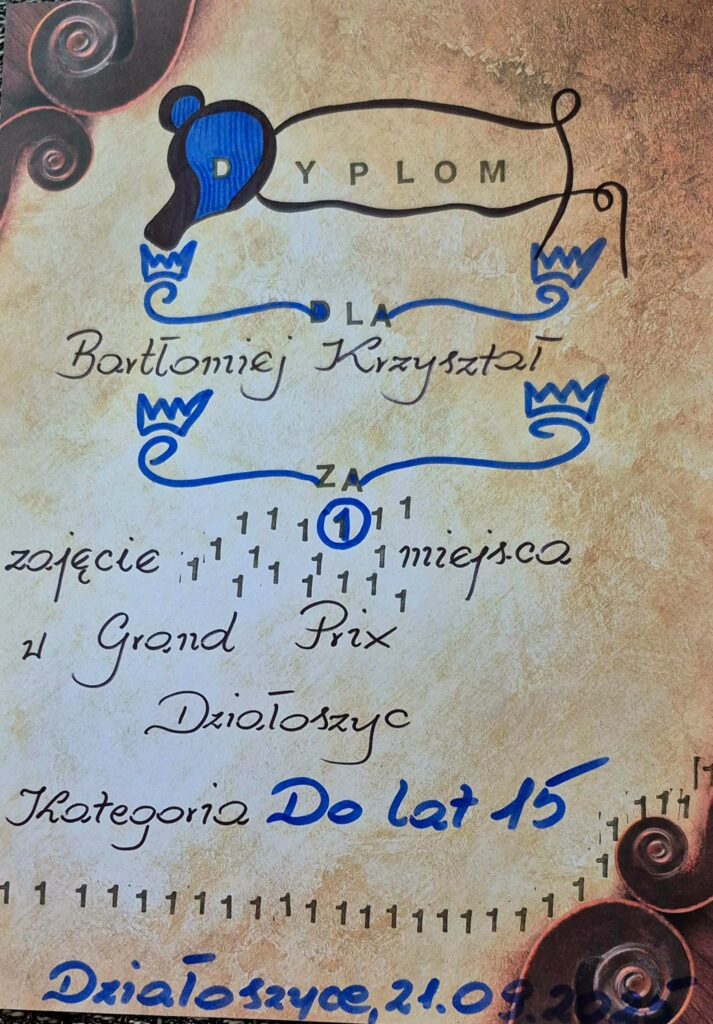 DYPLOM
DLA
Bartłomiej Krzyształ
ZA
1 1 1 1 1 1
zajęcie 1 1 1 1 1 1 miejsca
1 1 1 1 1 1
w Grand Prix
Działoszyc
Kategoria Do lat 15
1 1 1 1 1 1 1 1 1 1 1 1 1 1 1 1 1 1 1 1 1 1 1 1 1 1 1
Działoszyce, 21.09.2025